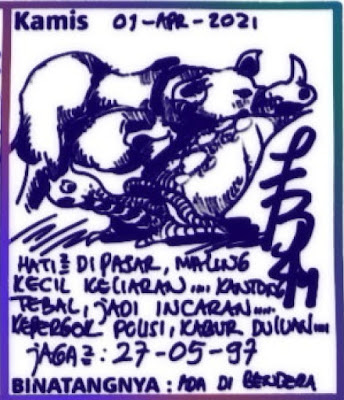 Kamis 01-APR-2021
HATI² DI PASAR, MALING
KECIL KELIARAN.... KANTONG
TEBAL, JADI INCARAN.....
KEPERGOK POLISI, KABUR DULUAN....
JAGA²: 27-05-97
BINATANGNYA : ADA DI BENDERA